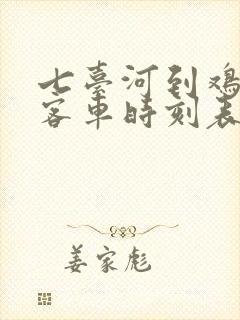 七臺河到鸡
客車時刻表
姜家彪